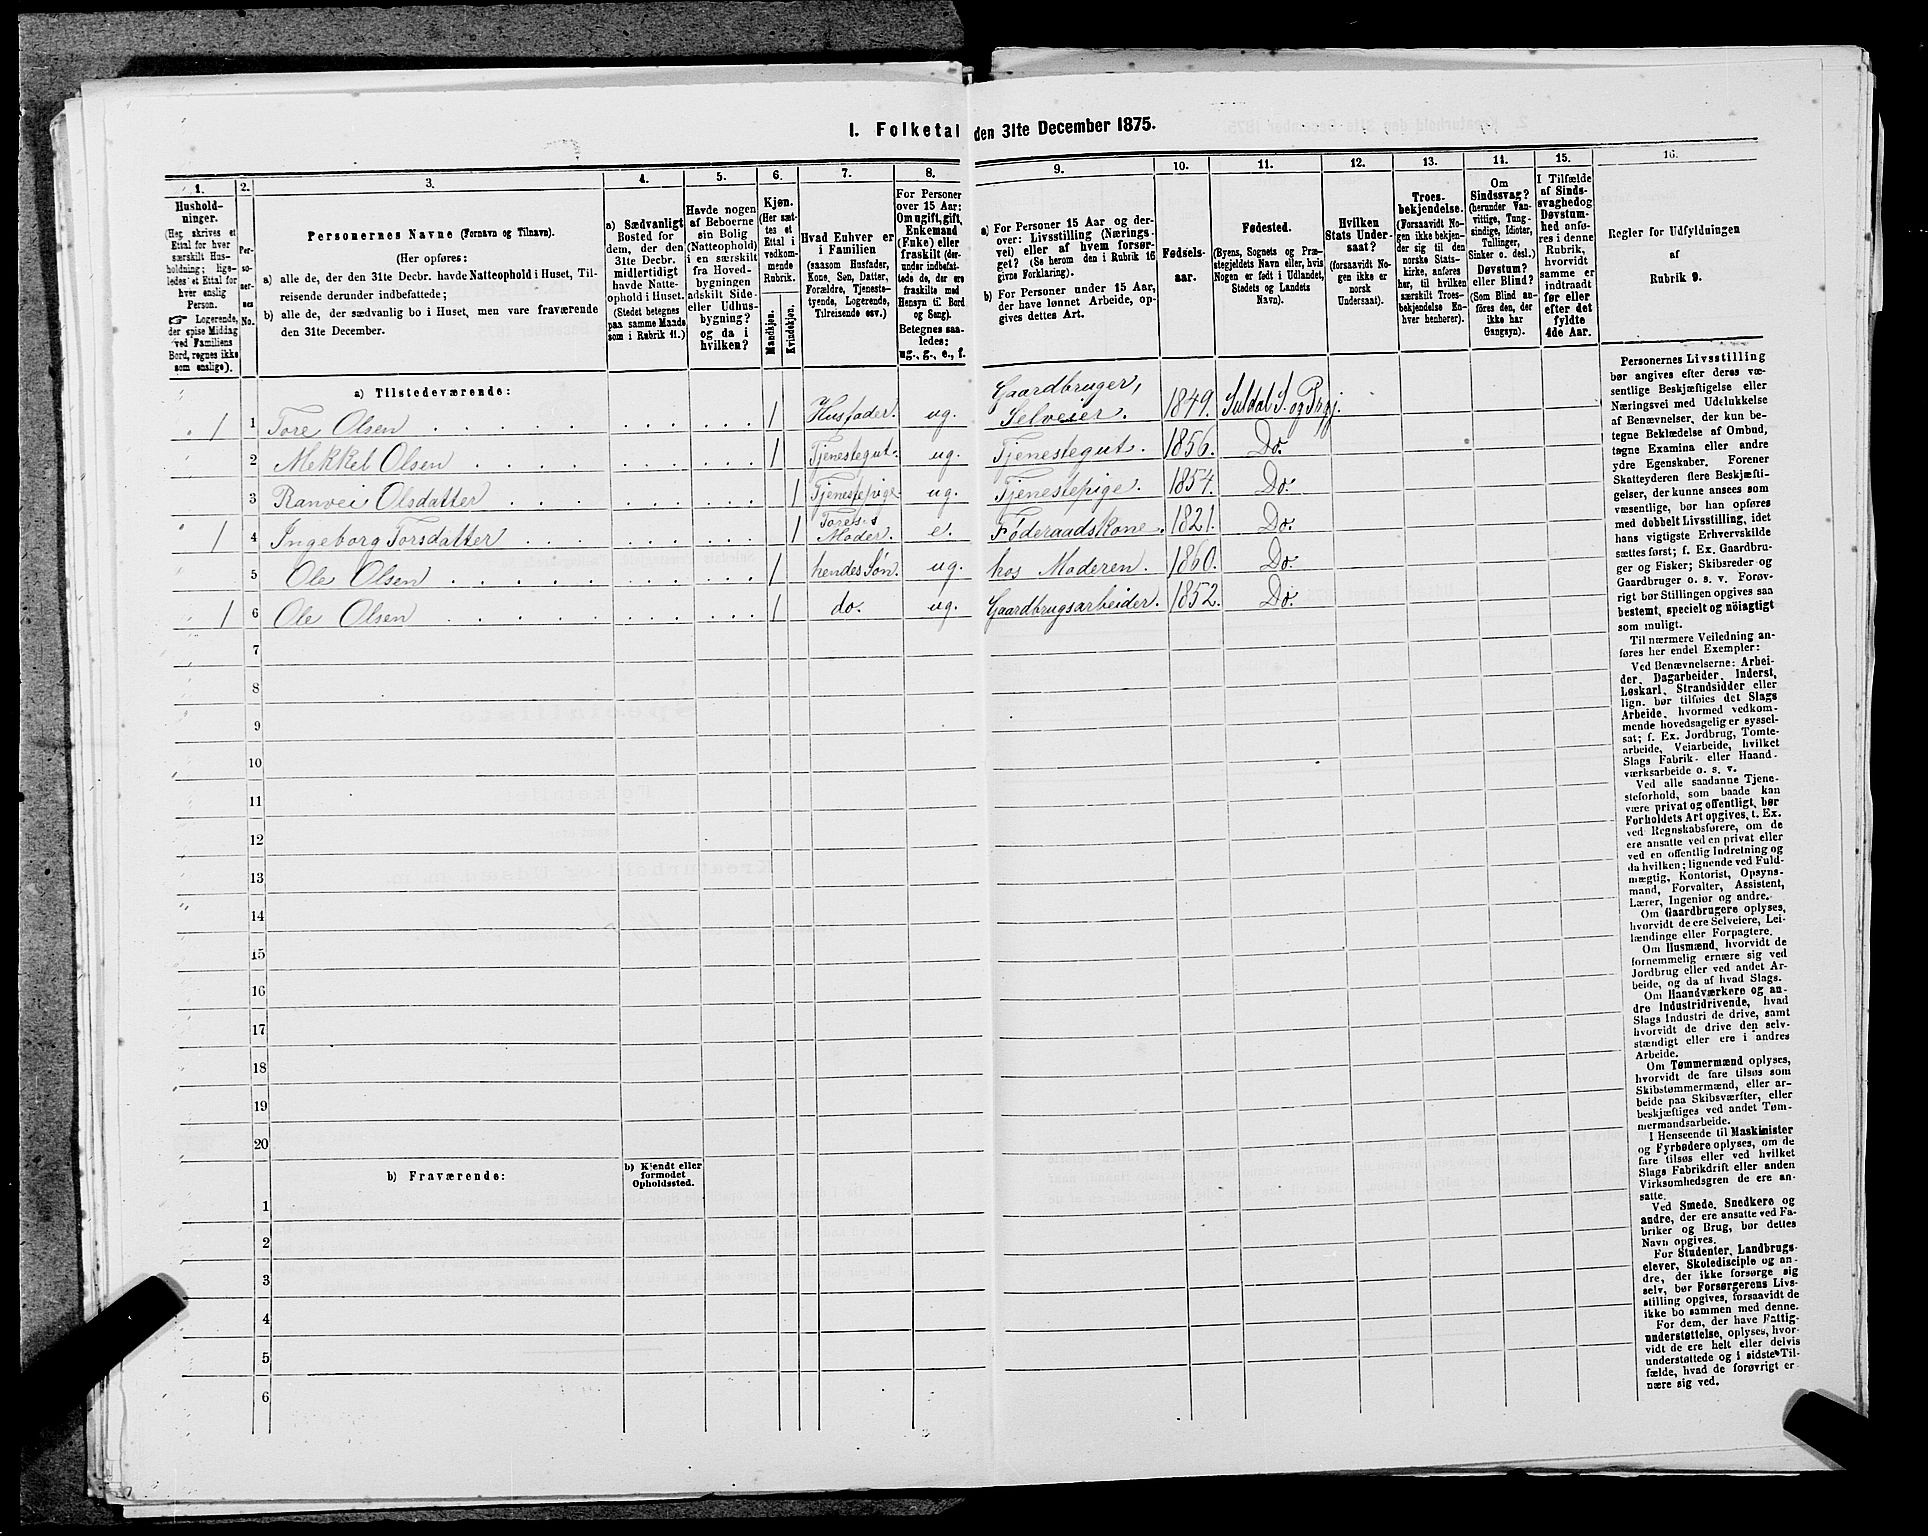 I. Folketal den 31te December 1875.
1. 2. 3. 4. 5. 6. 7. 8. 9. 10. 11. 12. 13. 14. 15. 16.
Hushold-
ninger.
(Her skrives et
Ettal for hver
særskilt Hus-
holdning; lige-
ledes et Ettal for
hver enslig
Person.
☞ Logerende,
der spise Middag
ved Familiens
Bord, regnes ikke
som enslige).
Per-
so-
ner-
nes
No.
Personernes Navne (Fornavn og Tilnavn).
(Her opføres:
a) alle de, der den 31te Decbr. havde Natteophold i Huset, Til-
reisende derunder indbefattede;
b) alle de, der sædvanlig bo i Huset, men vare fraværende
den 31te December.
a) Sædvanligt
Bosted for
dem, der den
31te Decbr.
midlertidigt
havde Natte-
ophold i Huset.
(Stedet betegnes
paa samme Maade
som i Rubrik 11.)
Havde nogen
af Beboerne
sin Bolig
(Natteophold)
i en særskilt
fra Hoved-
bygningen
adskilt Side-
eller Udhus-
bygning?
og da i
hvilken?
Kjøn.
(Her sæt-
tes et
Ettal i
vedkom-
mende
Rubrik.
Mandkjøn.
Kvindekjøn.
Hvad Enhver er
i Familien
(saasom Husfader,
Kone, Søn, Datter,
Forældre, Tjeneste-
tyende, Logerende,
Tilreisende osv.)
For Personer
over 15 Aar:
Om ugift, gift,
Enkemand
(Enke) eller
fraskilt (der-
under indbefat-
tede de, der ere
fraskilte med
Hensyn til Bord
og Seng).
Betegnes saa-
ledes:
ug., g., e., f.
a) For Personer 15 Aar og der-
over: Livsstilling (Nærings-
vei) eller af hvem forsør-
get? (Se herom den i Rubrik 16
givne Forklaring).
b) For Personer under 15 Aar,
der have lønnet Arbeide, op-
gives dettes Art.
Fødsels-
aar.
Fødested.
(Byens, Sognets og Præ-
stegjeldets Navn eller, hvis
Nogen er født i Udlandet,
Stedets og Landets
Navn).
Hvilken
Stats Under-
saat?
(forsaavidt No-
gen ikke er
norsk
Undersaat).
Troes-
bekjendelse.
(Forsaavidt No-
gen ikke bekjen-
der sig til den
norske Stats-
kirke, anføres
her, til hvilken
særskilt Troes-
bekjendelse En-
hver henhører).
Om
Sindssvag?
(herunder Van-
vittige, Tung-
sindige, Idioter,
Tullinger,
Sinker o. desl.)
Døvstum?
eller Blind?
(Som Blind an-
føres den, der
ikke har
Gangsyn).
I Tilfælde
af Sinds-
svaghed og
Døvstum-
hed anfø-
res i denne
Rubrik,
hvorvidt
samme er
indtraadt
før eller
efter det
fyldte
4de Aar.
Regler for Udfyldningen
af
Rubrik 9.
a) Tilstedeværende:
1 1 Tore Olsen 1 Husfader. ug. Gaardbruger, Selveier. 1849. Suldal S. og Prgj.
2 Mekkel Olsen 1 Tjenestegut. ug. Tjenestegut. 1856. Do.
3 Ranvei Olsdatter 1 Tjenestepige. ug. Tjenestepige. 1854. Do.
1 4 Ingeborg Torsdatter 1 Tores Moder. e. Føderaadskone. 1821. Do.
5 Ole Olsen 1 hendes Søn. ug. hos Moderen. 1860. Do.
1 6 Ole Olsen 1 do. ug. Gaardbrugsarbeider. 1852. Do.
7
8
9
10
11
12
13
14
15
16
17
18
19
20
b) Fraværende:
b) Kjendt eller
formodet
Opholdssted.
1
2
3
4
5
6
Personernes Livsstilling
bør angives efter deres væ-
sentlige Beskjæftigelse eller
Næringsvei med Udelukkelse
af Benævnelser, der kun be-
tegne Beklædelse af Ombud,
tagne Examina eller andre
ydre Egenskaber. Forener
Skatteyderen flere Beskjæfti-
gelser, der kunne ansees som
væsentlige, bør han opføres
med dobbelt Livsstilling, idet
hans vigtigste Erhvervskilde
sættes først; f. Ex. Gaardbru-
ger og Fisker; Skibsreder og
Gaardbruger o. s. v. Forøv-
rigt bør Stillingen opgives saa
bestemt, specielt og nöiagtigt
som muligt.
Til nærmere Veiledning an-
føres her endel Exempler:
Ved Benævnelserne: Arbei-
der, Dagarbeider, Inderst,
Løskarl, Strandsidder eller
lign. bør tilføies det Slags
Arbeide, hvormed vedkom-
mende hovedsagelig er syssel-
sat; f. Ex. Jordbrug, Tomte-
arbeide, Veiarbeide, hvilket
Slags Fabrik- eller Haand-
værksarbeide o. s. v.
Ved alle saadanne Tjene-
steforhold, som baade kan
være privat og offentligt, bør
Forholdets Art opgives, t. Ex.
ved Regnskabsførere, om de
ere ansatte ved en privat eller
ved en offentlig Indretning og
da hvilken; lignende ved Fuld-
mægtig, Kontorist, Opsyns-
mand, Forvalter, Assistent,
Lærer, Ingeniør og andre.
Om Gaardbrugere oplyses,
hvorvidt de ere Selveiere, Lei-
lændinge eller Forpagtere.
Om Husmænd, hvorvidt de
fornemmelig ernære sig ved
Jordbrug eller ved andet Ar-
beide, og da af hvad Slags.
Om Haandværkere og an-
dre Industridrivende, hvad
Slags Industri de drive, samt
hvorvidt de drive den selv-
stændigt eller ere i andres
Arbeide.
Om Tømmermænd oplyses,
hvorvidt de fare tilsøs som
Skibstømmermænd, eller ar-
beide paa Skibsværfter, eller
beskjæftiges ved andet Tøm-
mermandsarbeide.
I Henseende til Maskinister
og Fyrbødere oplyses, om de
fare tilsøs eller ved hvilket
Slags Fabrikdrift eller anden
Virksomhedsgren de ere an-
satte.
Ved Smede, Snedkere og
andre, der ere ansatte ved Fa-
briker og Brug, bør dettes
Navn opgives.
For Studenter, Landbrugs-
elever, Skoledisciple og an-
dre, der ikke forsørge sig
selv, bør Forsørgerens Livs-
stilling opgives, forsaavidt de
ikke bo sammen med denne.
For dem, der have Fattig-
understøttelse, oplyses, hvor-
vidt de ere helt eller delvis
understøttede og i sidste Til-
fælde, hvad de forøvrigt er-
nære sig ved.